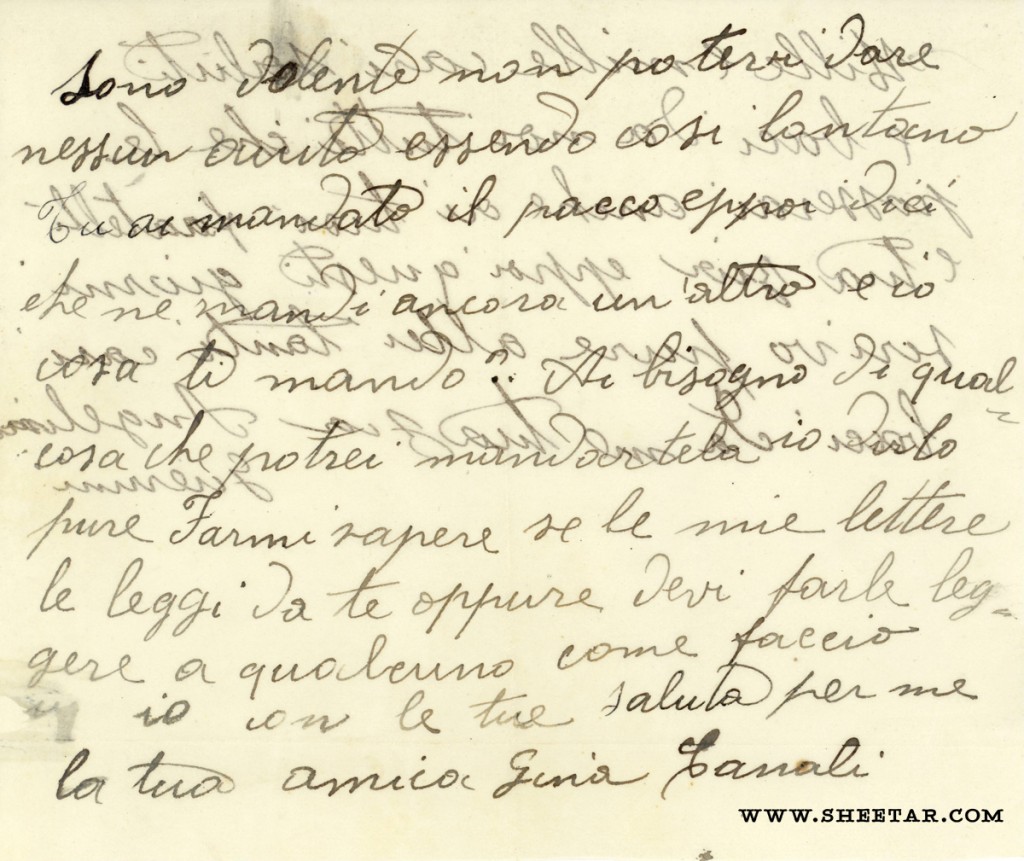 Sono dolente non potervi dare
nessun aiuto essendo cosi lontano
Tu ai mandato il pacco eppoi dici
che ne mandi ancora un'altro e io
cosa ti mando? Ai bisogno di qual=
cosa che potrei mandartela io
pure Farmi sapere se le mie lettere
le leggi da te oppure devi farle leg=
gere a qualcuno come faccio
io con le tue saluta per me
la tua amica Gina Canali
WWW.SHEETAR.COM